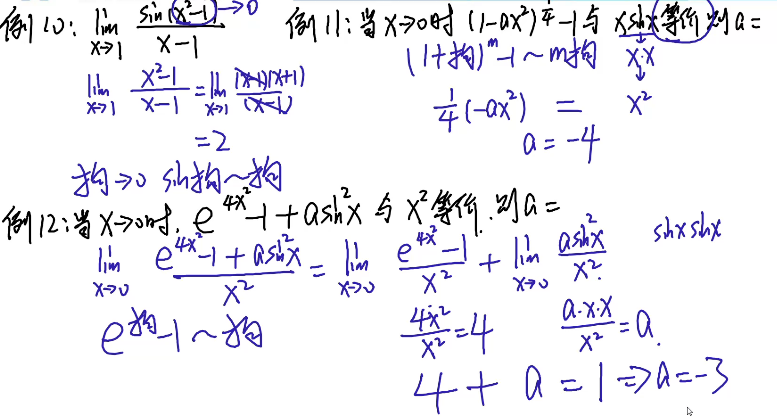 例10: lim x→1 sin(x²-1)/(x-1) →0
lim x→1 (x²-1)/(x-1) = lim x→1 (x-1)(x+1)/(x-1)
=2
狗→0 sin狗~狗
例11: 当x→0时 (1-ax²)^(1/4)-1与 xsinx等价 则a=
(1+狗)^m-1~m狗 x·x
1/4(-ax²) = x²
a=-4
例12: 当x→0时, e^(4x²)-1+asin²x 与 x²等价, 则a=
lim x→0 (e^(4x²)-1+asin²x)/x² = lim x→0 (e^(4x²)-1)/x² + lim x→0 asin²x/x² sinx sinx
e^狗-1~狗 4x²/x²=4 a·x·x/x²=a
4+a=1⇒a=-3